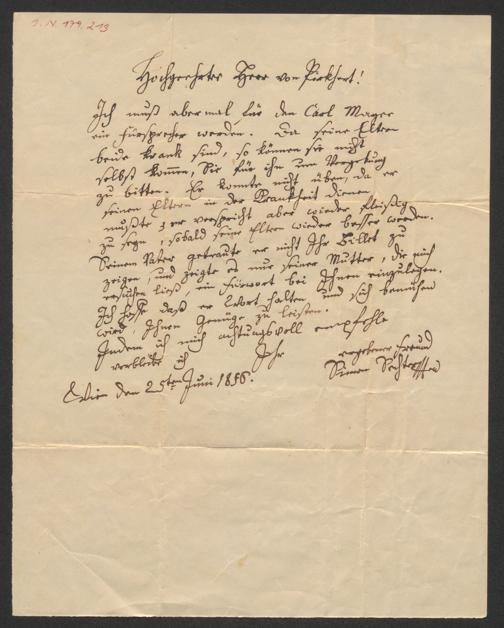 I. N. 179.213
Hochgeehrter Herr von Pirkhert!
Ich muß abermal für den Carl Mager
ein Fürsprecher werden. Da seine Eltern
beide krank sind, so können sie nicht
selbst kommen, Sie für ihn um Vergebung
zu bitten. Er konnte nicht üben, da er
seinen Eltern in der Krankheit dienen
mußte; er verspricht aber wieder fleißig
zu seyn, sobald seine Eltern wieder besser werden.
Seinem Vater getraute er nicht Ihr Billet zu
zeigen, und zeigte es nur seiner Mutter, die mich
ersuchen ließ, ein Fürwort bei Ihnen einzulegen.
Ich hoffe daß er Wort halten und sich bemühen
wird, Ihnen Genüge zu leisten.
Indem ich mich achtungsvoll empfehle
verbleibe ich Ihr
ergebener Freund
Wien den 25ten Juni 1856. Simon Sechter